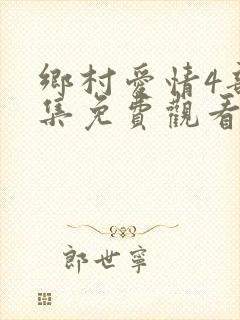 鄉村愛情4
集免費觀看
郎世寧